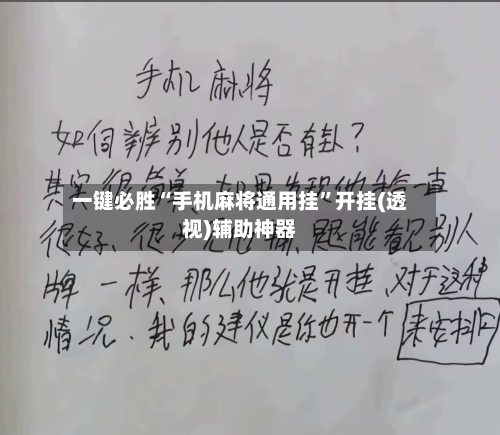 手机麻将
如何辨别他人是否有卦？
其实很简单，如果发现他手气一直
一键必胜“手机麻将通用挂”开挂(透
视)辅助神器
很好、很少
是能看见别人
牌一样、那么他就是开挂，对于这种
情况．我的建仪是你也开一个